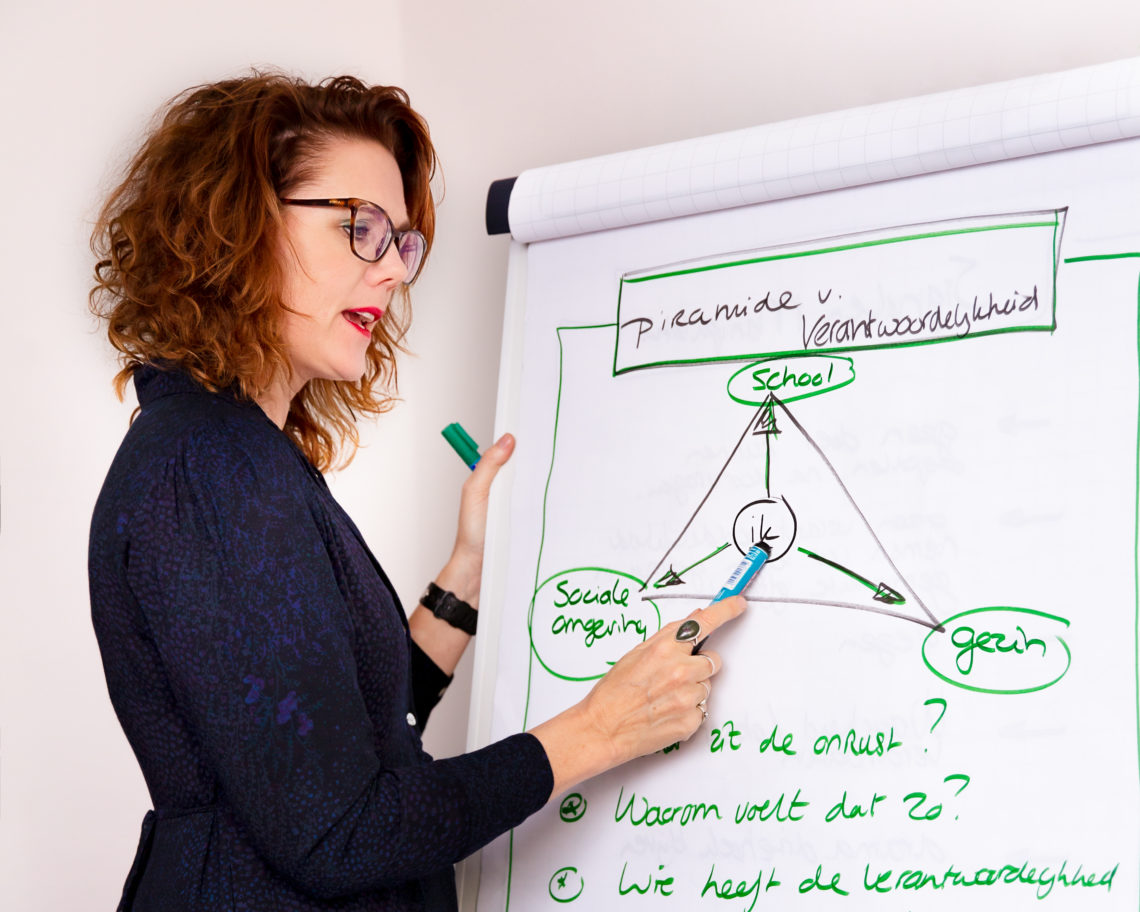 piramide v.
Verantwoordelykheid
School
ik
Sociale
omgeving
gezin
zit de onrust?
Waarom voelt dat zo?
Wie heeft de verantwoordelykheid